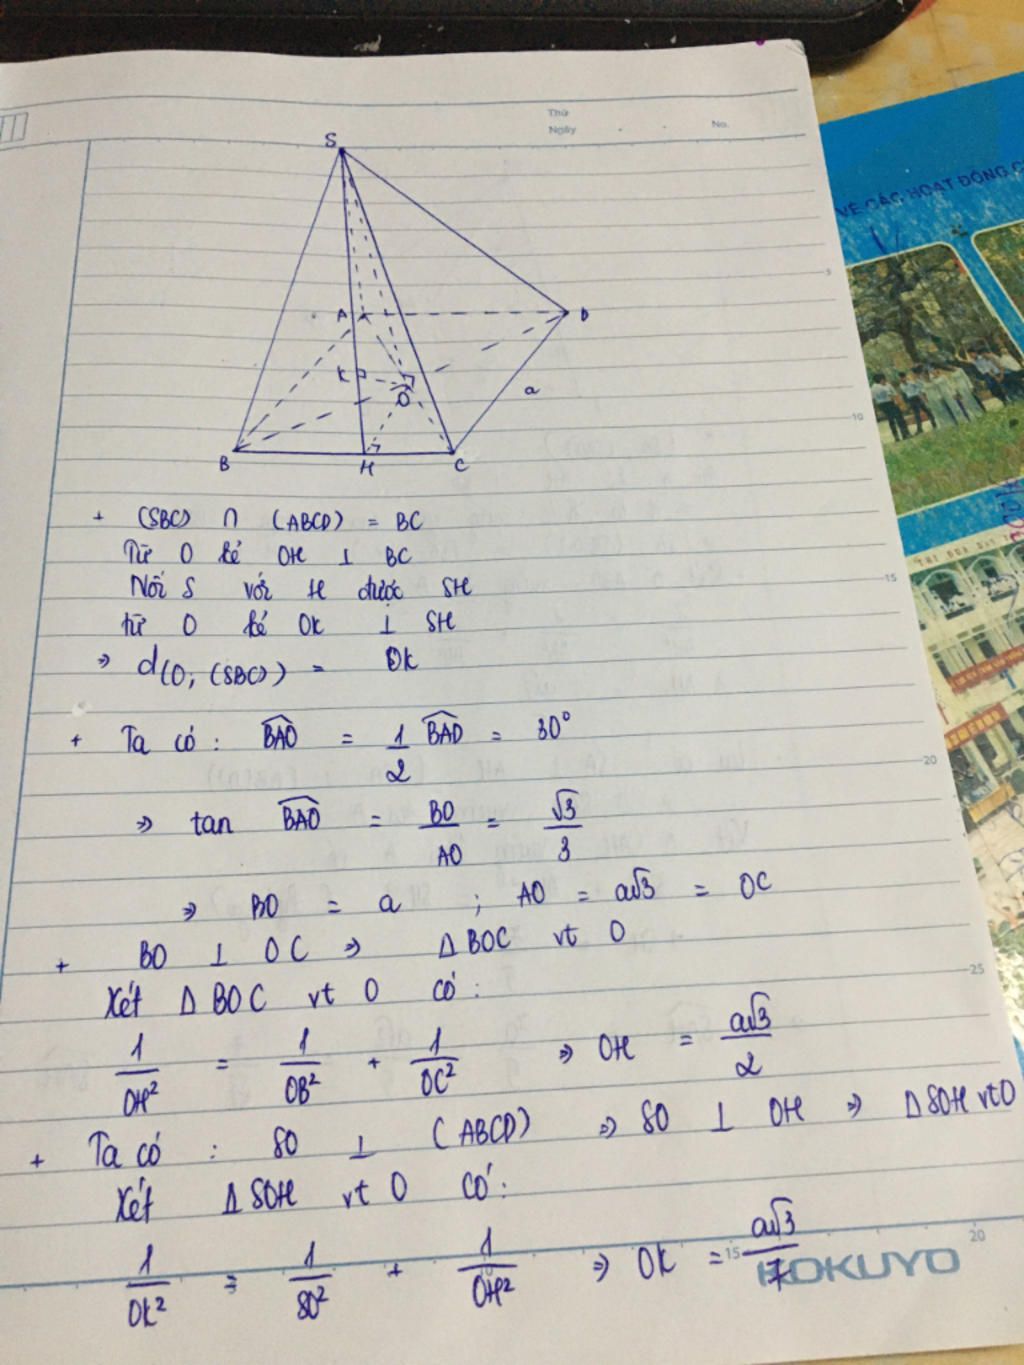 Thứ
Ngày . . No.
S
A
D
K
O
a
B
H
C
5
10
15
20
25
+ (SBC) ∩ (ABCD) = BC
Từ O kẻ OH ⊥ BC
Nối S với H được SH
từ O kẻ OK ⊥ SH
⇒ d(O, (SBC)) = OK
+ Ta có: BAO = 1/2 BAD = 30°
⇒ tan BAO = BO/AO = √3/3
⇒ BO = a ; AO = a√3 = OC
+ BO ⊥ OC ⇒ Δ BOC vt O
Xét Δ BOC vt O có:
1/OH² = 1/OB² + 1/OC² ⇒ OH = a√3/2
+ Ta có: SO ⊥ (ABCD) ⇒ SO ⊥ OH ⇒ Δ SOH vt O
Xét Δ SOH vt O có:
1/OK² = 1/SO² + 1/OH² ⇒ OK = a√3/7
15
20
KOKUYO
VỀ CÁC HOẠT ĐỘNG